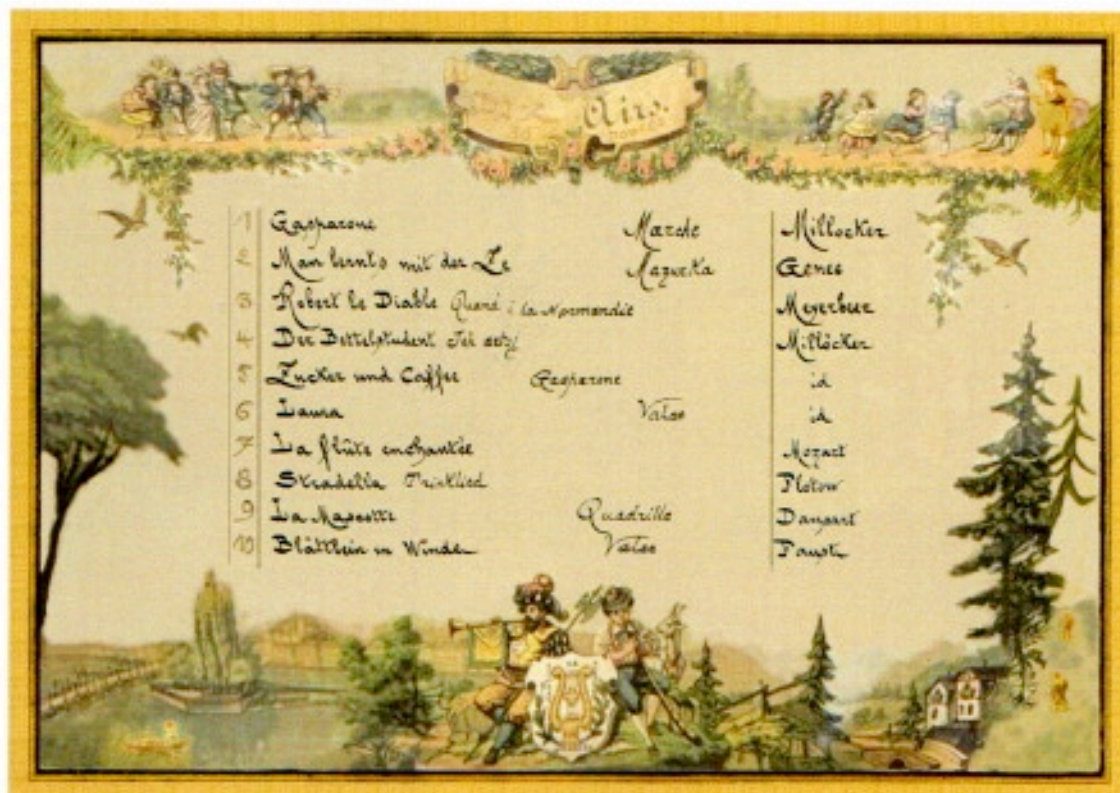 Airs.
1 Gasparone Marche Millocker
2 Man lernts mit der Ze Mazurka Genee
3 Robert le Diable Quand i la Normandie Meyerbeer
4 Der Bettelstudent Millöcker
5 Zucker und Caffee Gasparone id
6 Laura Valse id
7 La flûte enchantée Mozart
8 Stradella Trinklied Flotow
9 La Mascotte Quadrille
10 Blättlein in Winde Valse Faust